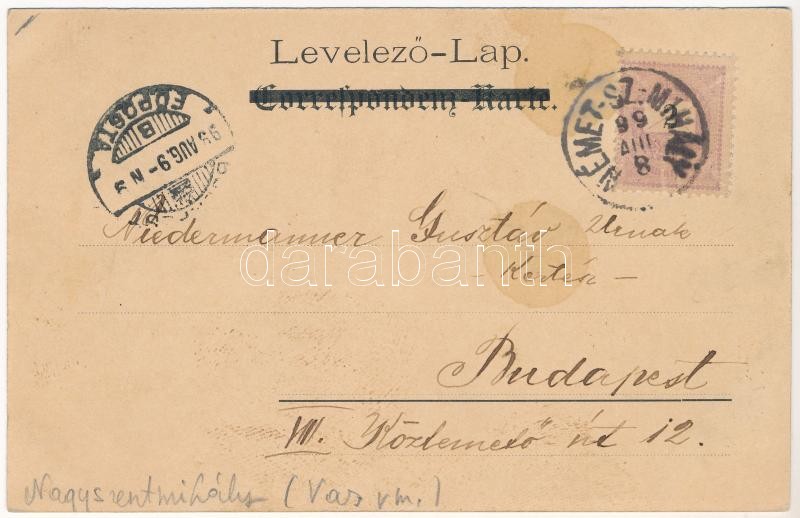 Levelező-Lap.
Correspondenz-Karte.
NÉMET-SZ: MIHÁLY
99
AUG
8
99 AUG. 9 - N 9
B
FŐPOSTA
Niedermanner Gusztáv Urnak
- Kertész -
Budapest
VIII. Köztemető út 12.
Nagyszentmihály (Vas vm.)
darabanth